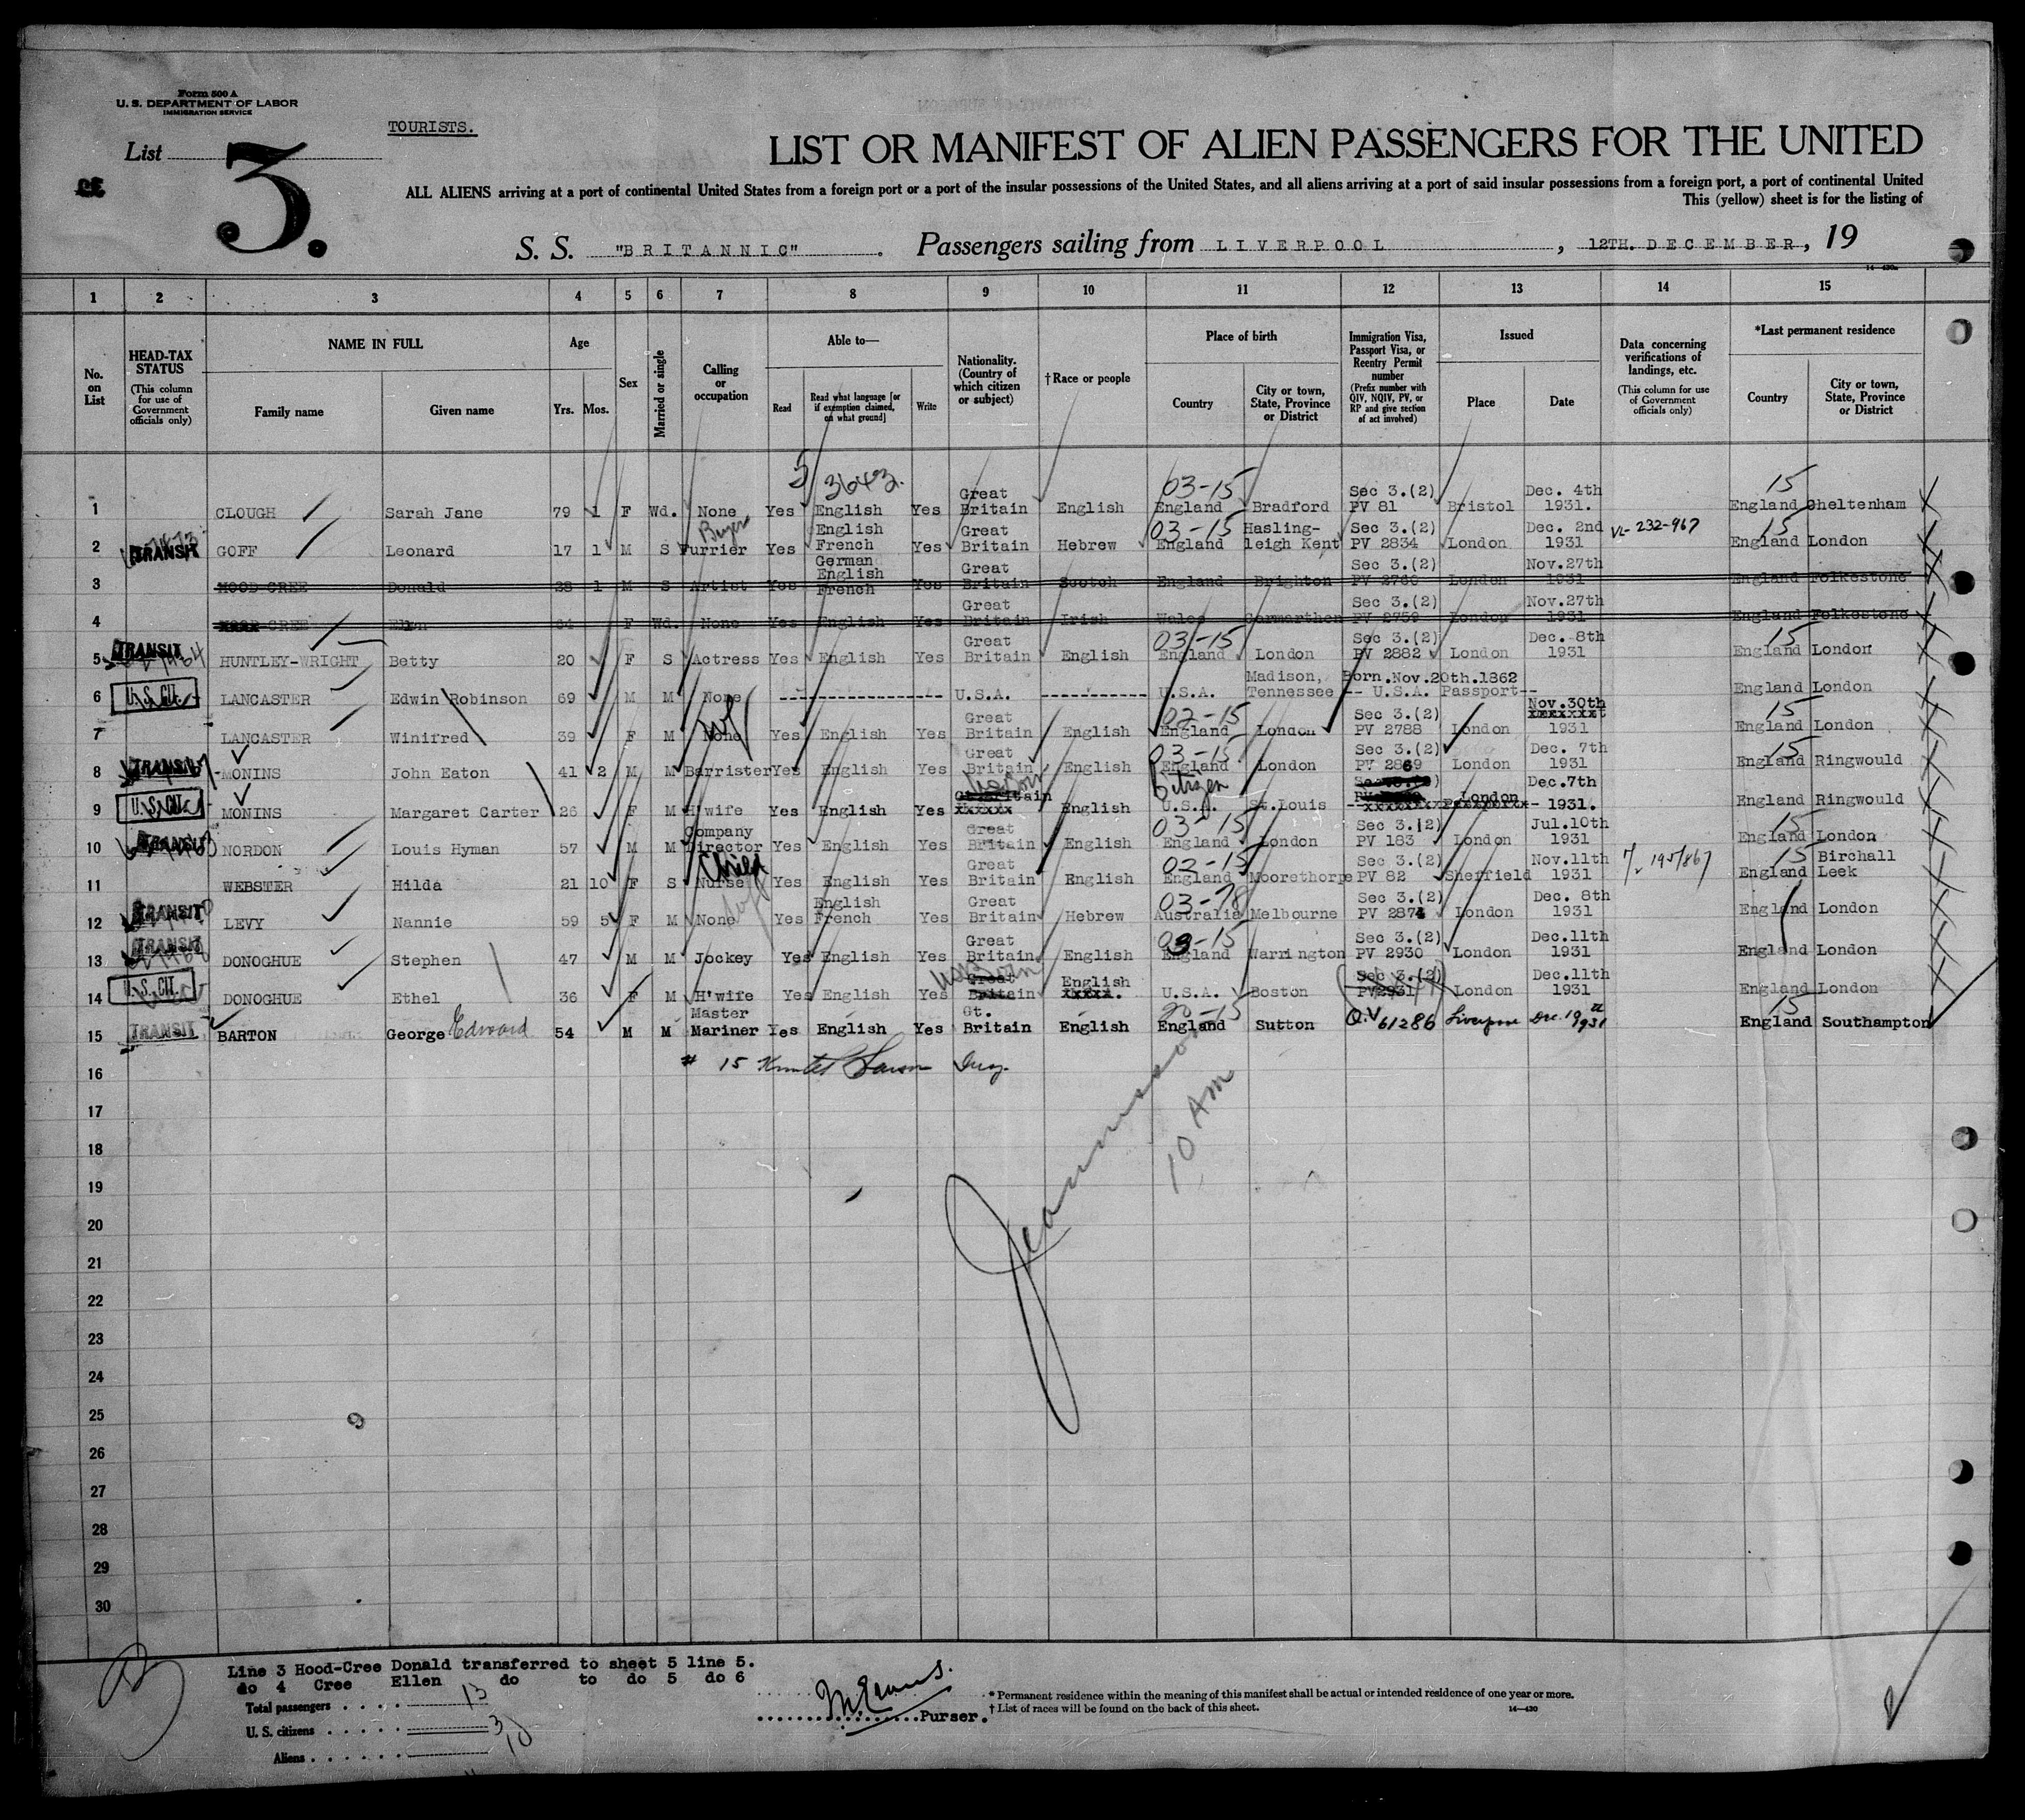 Form 500 A
U. S. DEPARTMENT OF LABOR
IMMIGRATION SERVICE
TOURISTS.
List 3.
LIST OR MANIFEST OF ALIEN PASSENGERS FOR THE UNITED
ALL ALIENS arriving at a port of continental United States from a foreign port or a port of the insular possessions of the United States, and all aliens arriving at a port of said insular possessions from a foreign port, a port of continental United
This (yellow) sheet is for the listing of
S. S. "BRITANNIC" . Passengers sailing from LIVERPOOL , 12TH. DECEMBER, 19
14—430a
1 2 3 4 5 6 7 8 9 10 11 12 13 14 15
No. on List
HEAD-TAX STATUS (This column for use of Government officials only)
NAME IN FULL Family name Given name
Age Yrs. Mos.
Sex
Married or single
Calling or occupation
Able to— Read Read what language [or if exemption claimed, on what ground] Write
Nationality. (Country of which citizen or subject)
†Race or people
Place of birth Country City or town, State, Province or District
Immigration Visa, Passport Visa, or Reentry Permit number (Prefix number with QIV, NQIV, PV, or RP and give section of act involved)
Issued Place Date
Data concerning verifications of landings, etc. (This column for use of Government officials only)
*Last permanent residence Country City or town, State, Province or District
5 3643. 03-15 15
1 CLOUGH Sarah Jane 79 1 F Wd. None Yes English Yes Great Britain English England Bradford Sec 3.(2) PV 81 Bristol Dec. 4th 1931. England Cheltenham
2 TRANSIT GOFF Leonard 17 1 M S Buyer Furrier Yes English French German Yes Great Britain Hebrew 03-15 England Hasling-leigh Kent Sec 3.(2) PV 2834 London Dec. 2nd 1931 VL-232-967 15 England London
3 HOOD-CREE Donald 28 1 M S Artist Yes English French Yes Great Britain Scotch England Brighton Sec 3.(2) PV 2760 London Nov.27th 1931 England Folkestone
4 CREE Ellen 64 F Wd. None Yes English Yes Great Britain Irish Wales Carmarthen Sec 3.(2) PV 2759 London Nov.27th 1931 England Folkestone
5 TRANSIT HUNTLEY-WRIGHT Betty 20 F S Actress Yes English Yes Great Britain English 03-15 England London Sec 3.(2) PV 2882 London Dec. 8th 1931 15 England London
6 U.S. CIT. LANCASTER Edwin Robinson 69 M M None U.S.A. U.S.A. Madison, Tennessee Born.Nov.20th.1862 -- U.S.A. Passport-- England London
7 LANCASTER Winifred 39 F M None Yes English Yes Great Britain English 02-15 England London Sec 3.(2) PV 2788 London Nov.30th 1931 15 England London
8 TRANSIT MONINS John Eaton 41 2 M M Barrister Yes English Yes Great Britain English 03-15 England London Sec 3.(2) PV 2869 London Dec. 7th 1931 15 England Ringwould
9 U.S. CIT. MONINS Margaret Carter 26 F M H'wife Yes English Yes English Citizen U.S.A. St.Louis London Dec.7th 1931. England Ringwould
10 TRANSIT NORDON Louis Hyman 57 M M Company Director Yes English Yes Great Britain English 03-15 England London Sec 3.(2) PV 183 London Jul.10th 1931 15 England London
11 WEBSTER Hilda 21 10 F S Child Nurse Yes English Yes Great Britain English 02-15 England Moorethorpe Sec 3.(2) PV 82 Sheffield Nov.11th 1931 195/867 15 England Birchall Leek
12 TRANSIT LEVY Nannie 59 5 F M None Yes English French Yes Great Britain Hebrew 03-78 Australia Melbourne Sec 3.(2) PV 2874 London Dec. 8th 1931 England London
13 TRANSIT DONOGHUE Stephen 47 M M Jockey Yes English Yes Great Britain English 03-15 England Warrington Sec 3.(2) PV 2930 London Dec.11th 1931 England London
14 U.S. CIT. DONOGHUE Ethel 36 F M H'wife Yes English Yes Great Britain USBorn English U.S.A. Boston Sec 3.(2) PV2931 London Dec.11th 1931 England London
15 TRANSIT BARTON George Edward 54 M M Master Mariner Yes English Yes Gt. Britain English England Sutton Q.V 61286 Liverpool Dec. 1931 15 England Southampton
16 # 15
17
10 AM
18
19
20
21
22
23
24
25
26
27
28
29
30
Line 3 Hood-Cree Donald transferred to sheet 5 line 5.
do 4 Cree Ellen do to do 5 do 6
Total passengers . . . . 13
U. S. citizens . . . . . 3
Aliens . . . . . . 10
Purser.
* Permanent residence within the meaning of this manifest shall be actual or intended residence of one year or more.
† List of races will be found on the back of this sheet.
14—430